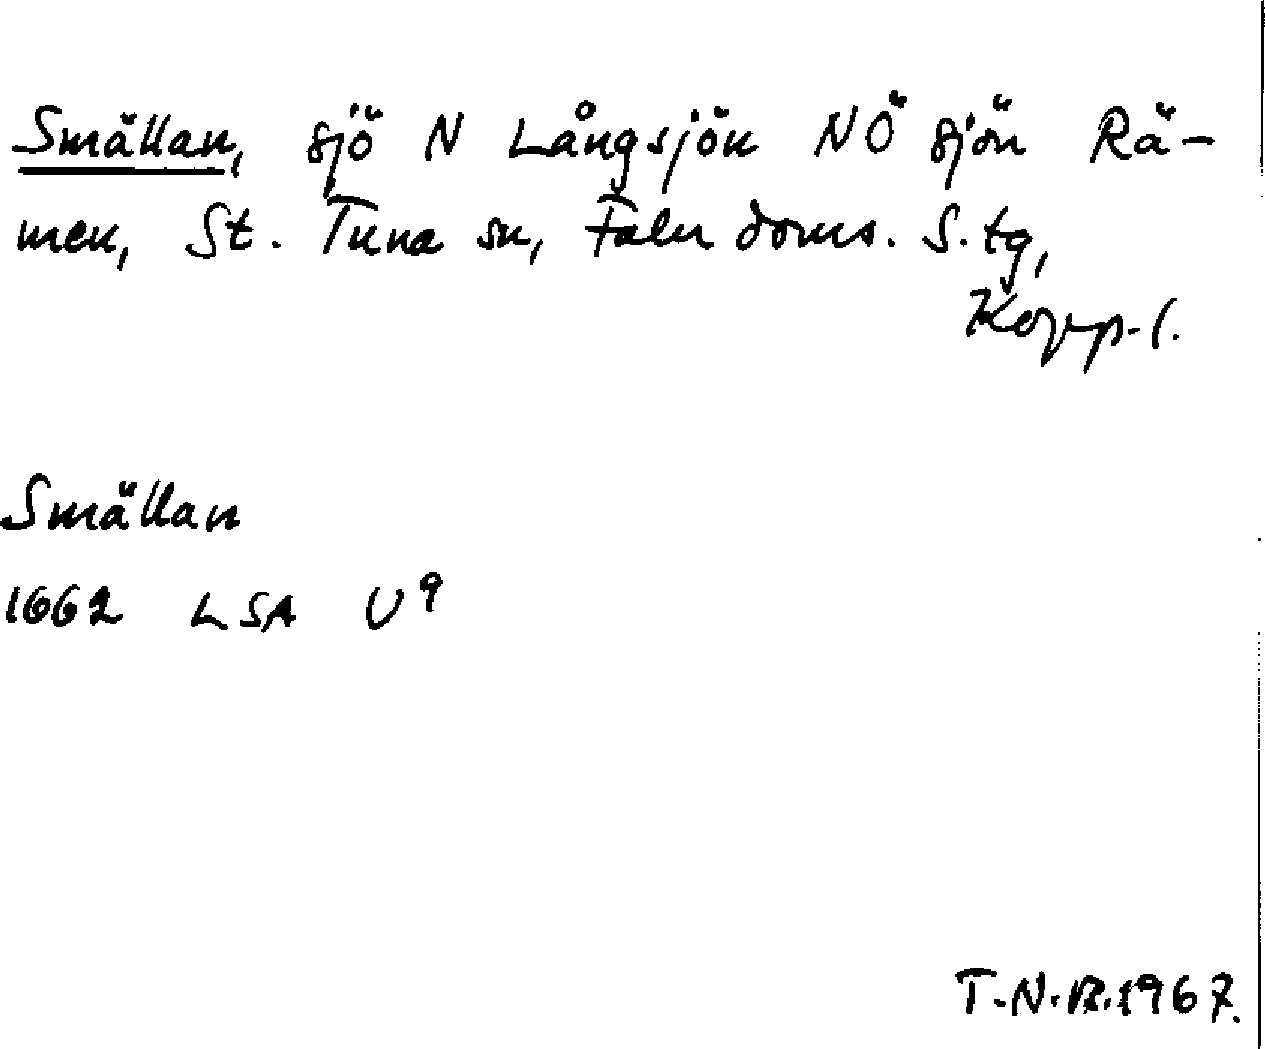 Smällan, sjö N Långsjön NÖ sjön Rä-
men, St. Tuna sn, Falu doms. S. tg,
Kopp. l.
Smällan
1662 LSA U9
T.N.R. 1967.